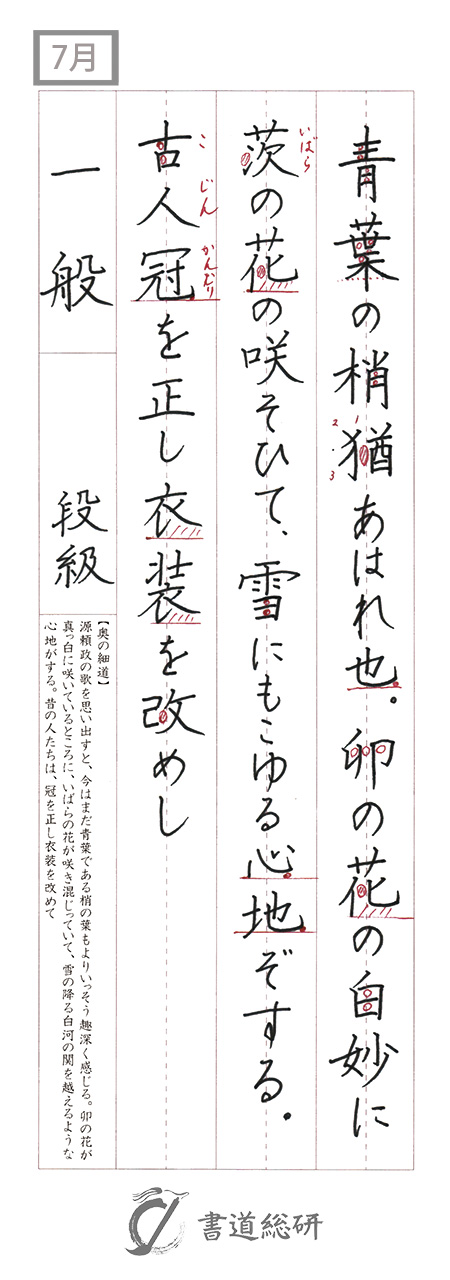 7月
青葉の梢猶あはれ也。卯の花の白妙に
茨の花の咲そひて、雪にもこゆる心地ぞする。
いばら
古人冠を正し衣装を改めし
こ じん かんむり
一般 段級
【奥の細道】
源頼政の歌を思い出すと、今はまだ青葉である梢の葉もよりいっそう趣深く感じる。卯の花が
真っ白に咲いているところに、いばらの花が咲き混じっていて、雪の降る白河の関を越えるような
心地がする。昔の人たちは、冠を正し衣装を改めて
1
2
3
書道総研